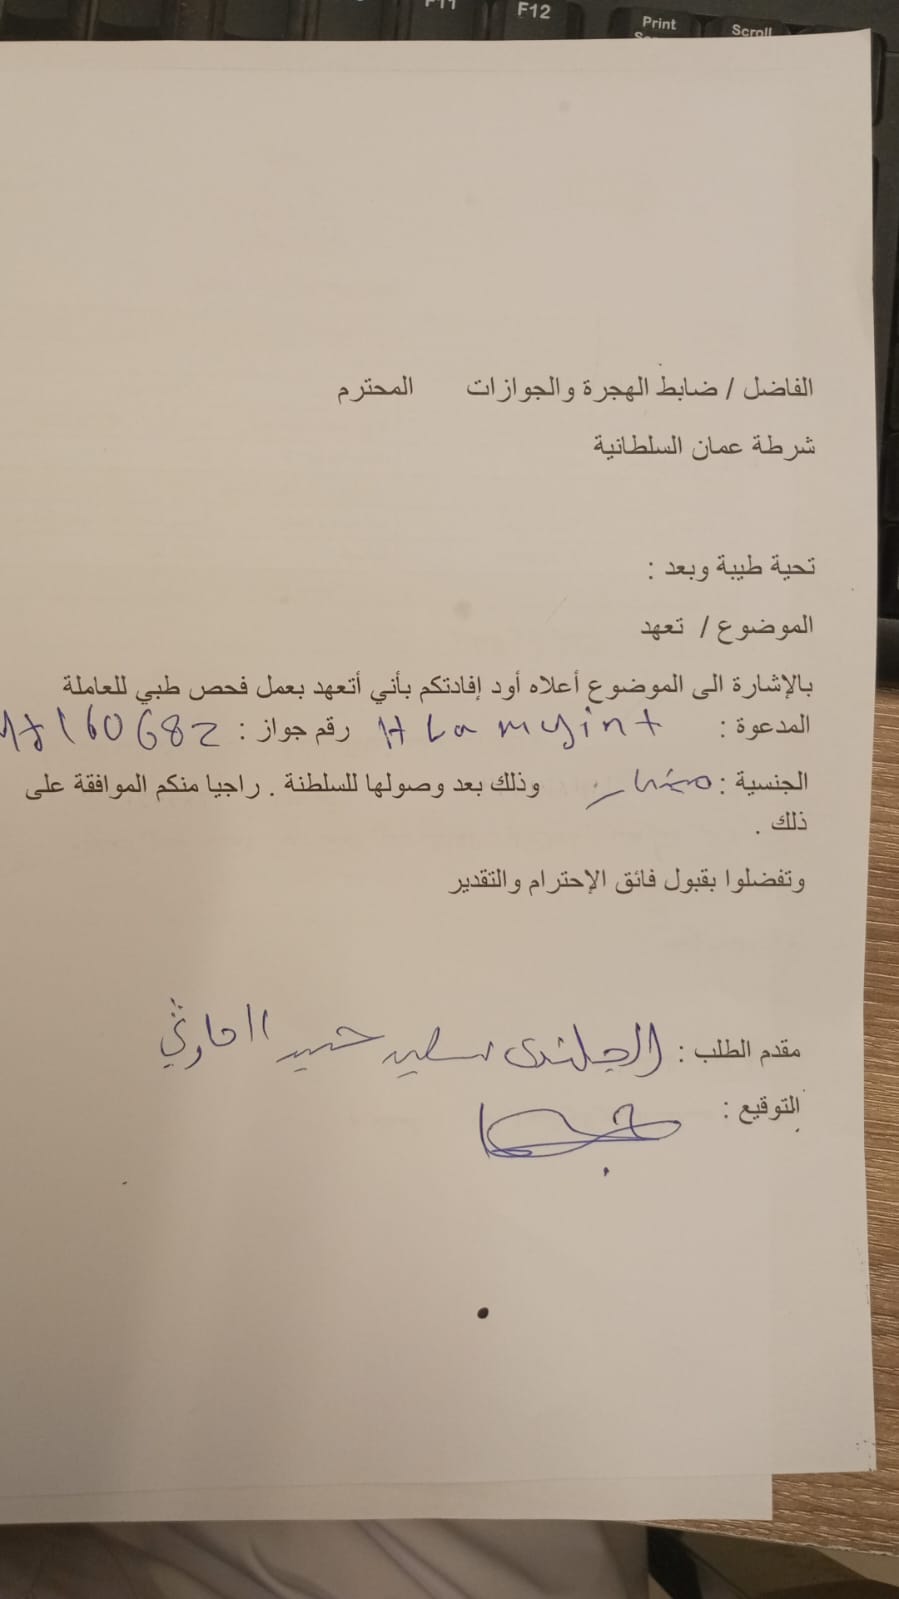 F11 F12 Print Scroll
الفاضل / ضابط الهجرة والجوازات المحترم
شرطة عمان السلطانية
تحية طيبة وبعد :
الموضوع / تعهد
بالإشارة الى الموضوع أعلاه أود إفادتكم بأني أتعهد بعمل فحص طبي للعاملة
المدعوة : Hla myint رقم جواز :
الجنسية : وذلك بعد وصولها للسلطنة . راجيا منكم الموافقة على
ذلك .
وتفضلوا بقبول فائق الإحترام والتقدير
مقدم الطلب : الجلندى سعيد حميد
التوقيع :